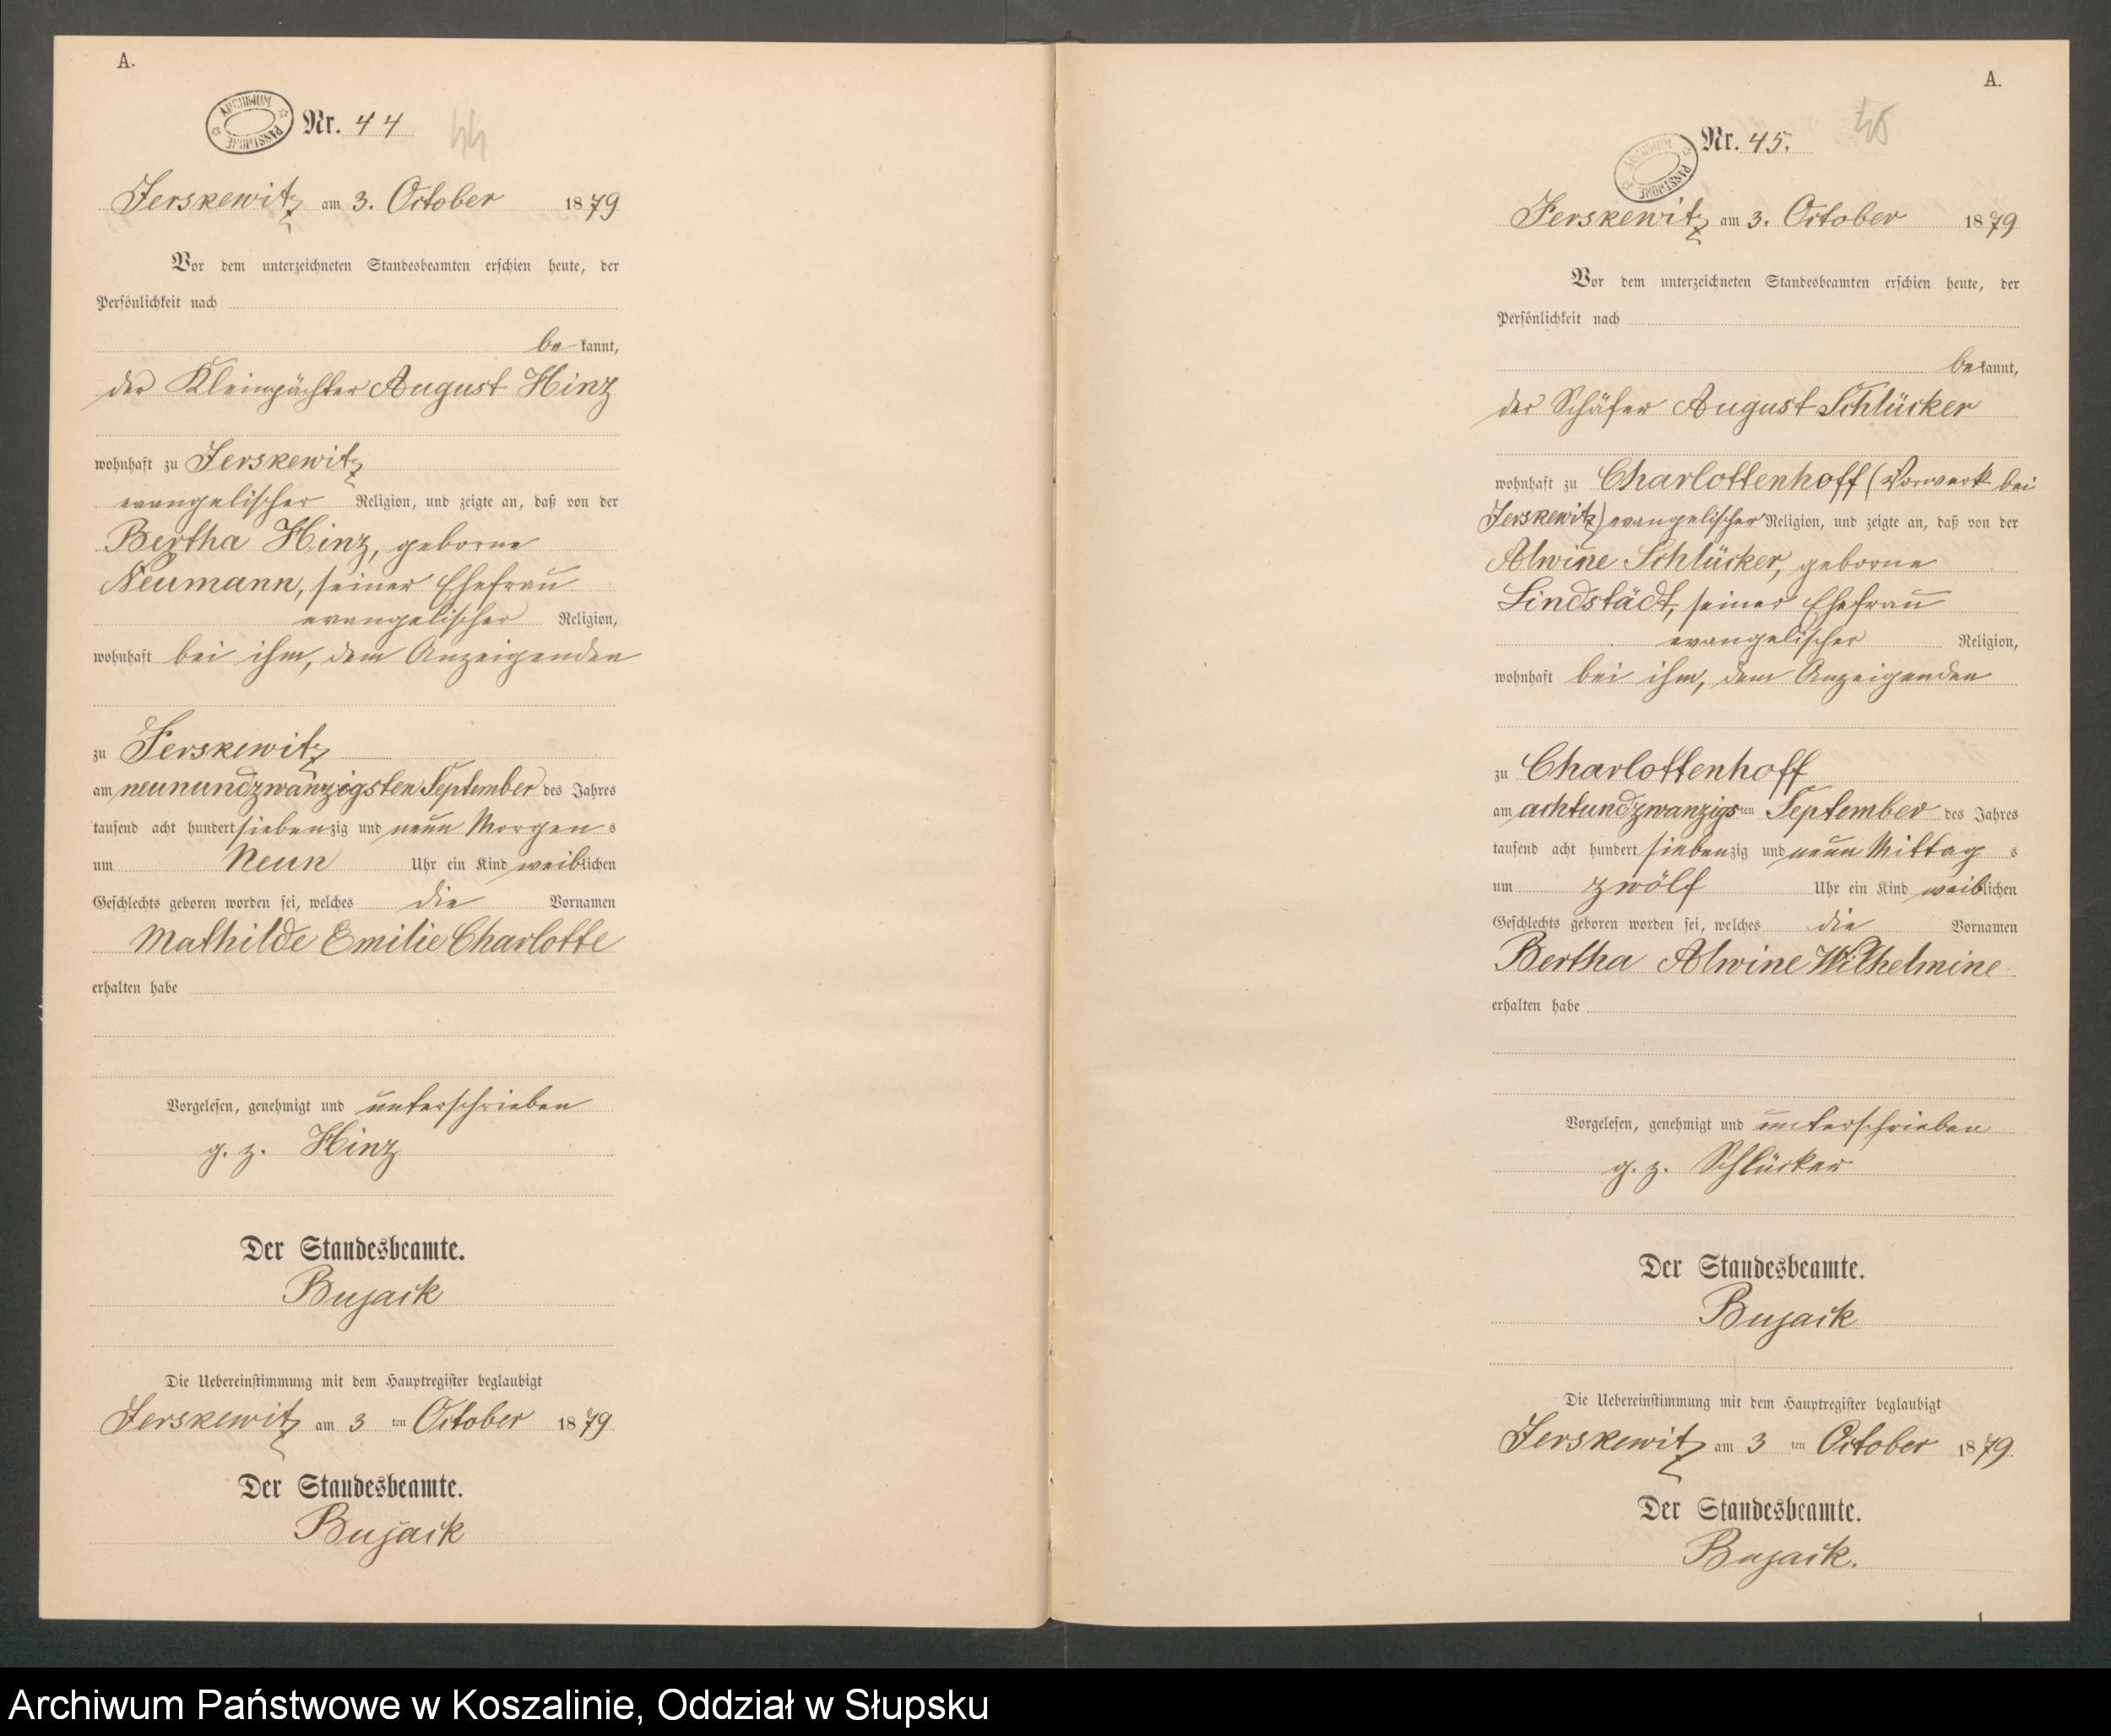 A.
ARCHIWUM PAŃSTWOWE
Nr. 44
44
Jerskewitz am 3. October 1879
Vor dem unterzeichneten Standesbeamten erschien heute, der
Persönlichkeit nach
be kannt,
der Kleinpächter August Hinz
wohnhaft zu Jerskewitz
evangelischer Religion, und zeigte an, daß von der
Bertha Hinz, geborne
Neumann, seiner Ehefrau
evangelischer Religion,
wohnhaft bei ihm, dem Anzeigenden
zu Jerskewitz
am neunundzwanzigsten September des Jahres
tausend acht hundert siebenzig und neun Morgens
um Neun Uhr ein Kind weiblichen
Geschlechts geboren worden sei, welches die Vornamen
Mathilde Emilie Charlotte
erhalten habe
Vorgelesen, genehmigt und unterschrieben
g. z. Hinz
Der Standesbeamte.
Bujack
Die Uebereinstimmung mit dem Hauptregister beglaubigt
Jerskewitz am 3 ten October 1879
Der Standesbeamte.
Bujack
A.
ARCHIWUM PAŃSTWOWE
Nr. 45.
45
Jerskewitz am 3. October 1879
Vor dem unterzeichneten Standesbeamten erschien heute, der
Persönlichkeit nach
bekannt,
der Schäfer August Schlücker
wohnhaft zu Charlottenhoff (Vorwerk bei
Jerskewitz) evangelischer Religion, und zeigte an, daß von der
Alwine Schlücker, geborne
Lindstädt, seiner Ehefrau
evangelischer Religion,
wohnhaft bei ihm, dem Anzeigenden
zu Charlottenhoff
am achtundzwanzigsten September des Jahres
tausend acht hundert siebenzig und neun Mittags
um zwölf Uhr ein Kind weiblichen
Geschlechts geboren worden sei, welches die Vornamen
Bertha Alwine Wilhelmine
erhalten habe
Vorgelesen, genehmigt und unterschrieben
g. z. Schlücker
Der Standesbeamte.
Bujack
Die Uebereinstimmung mit dem Hauptregister beglaubigt
Jerskewitz am 3 ten October 1879.
Der Standesbeamte.
Bujack.
1
Archiwum Państwowe w Koszalinie, Oddział w Słupsku